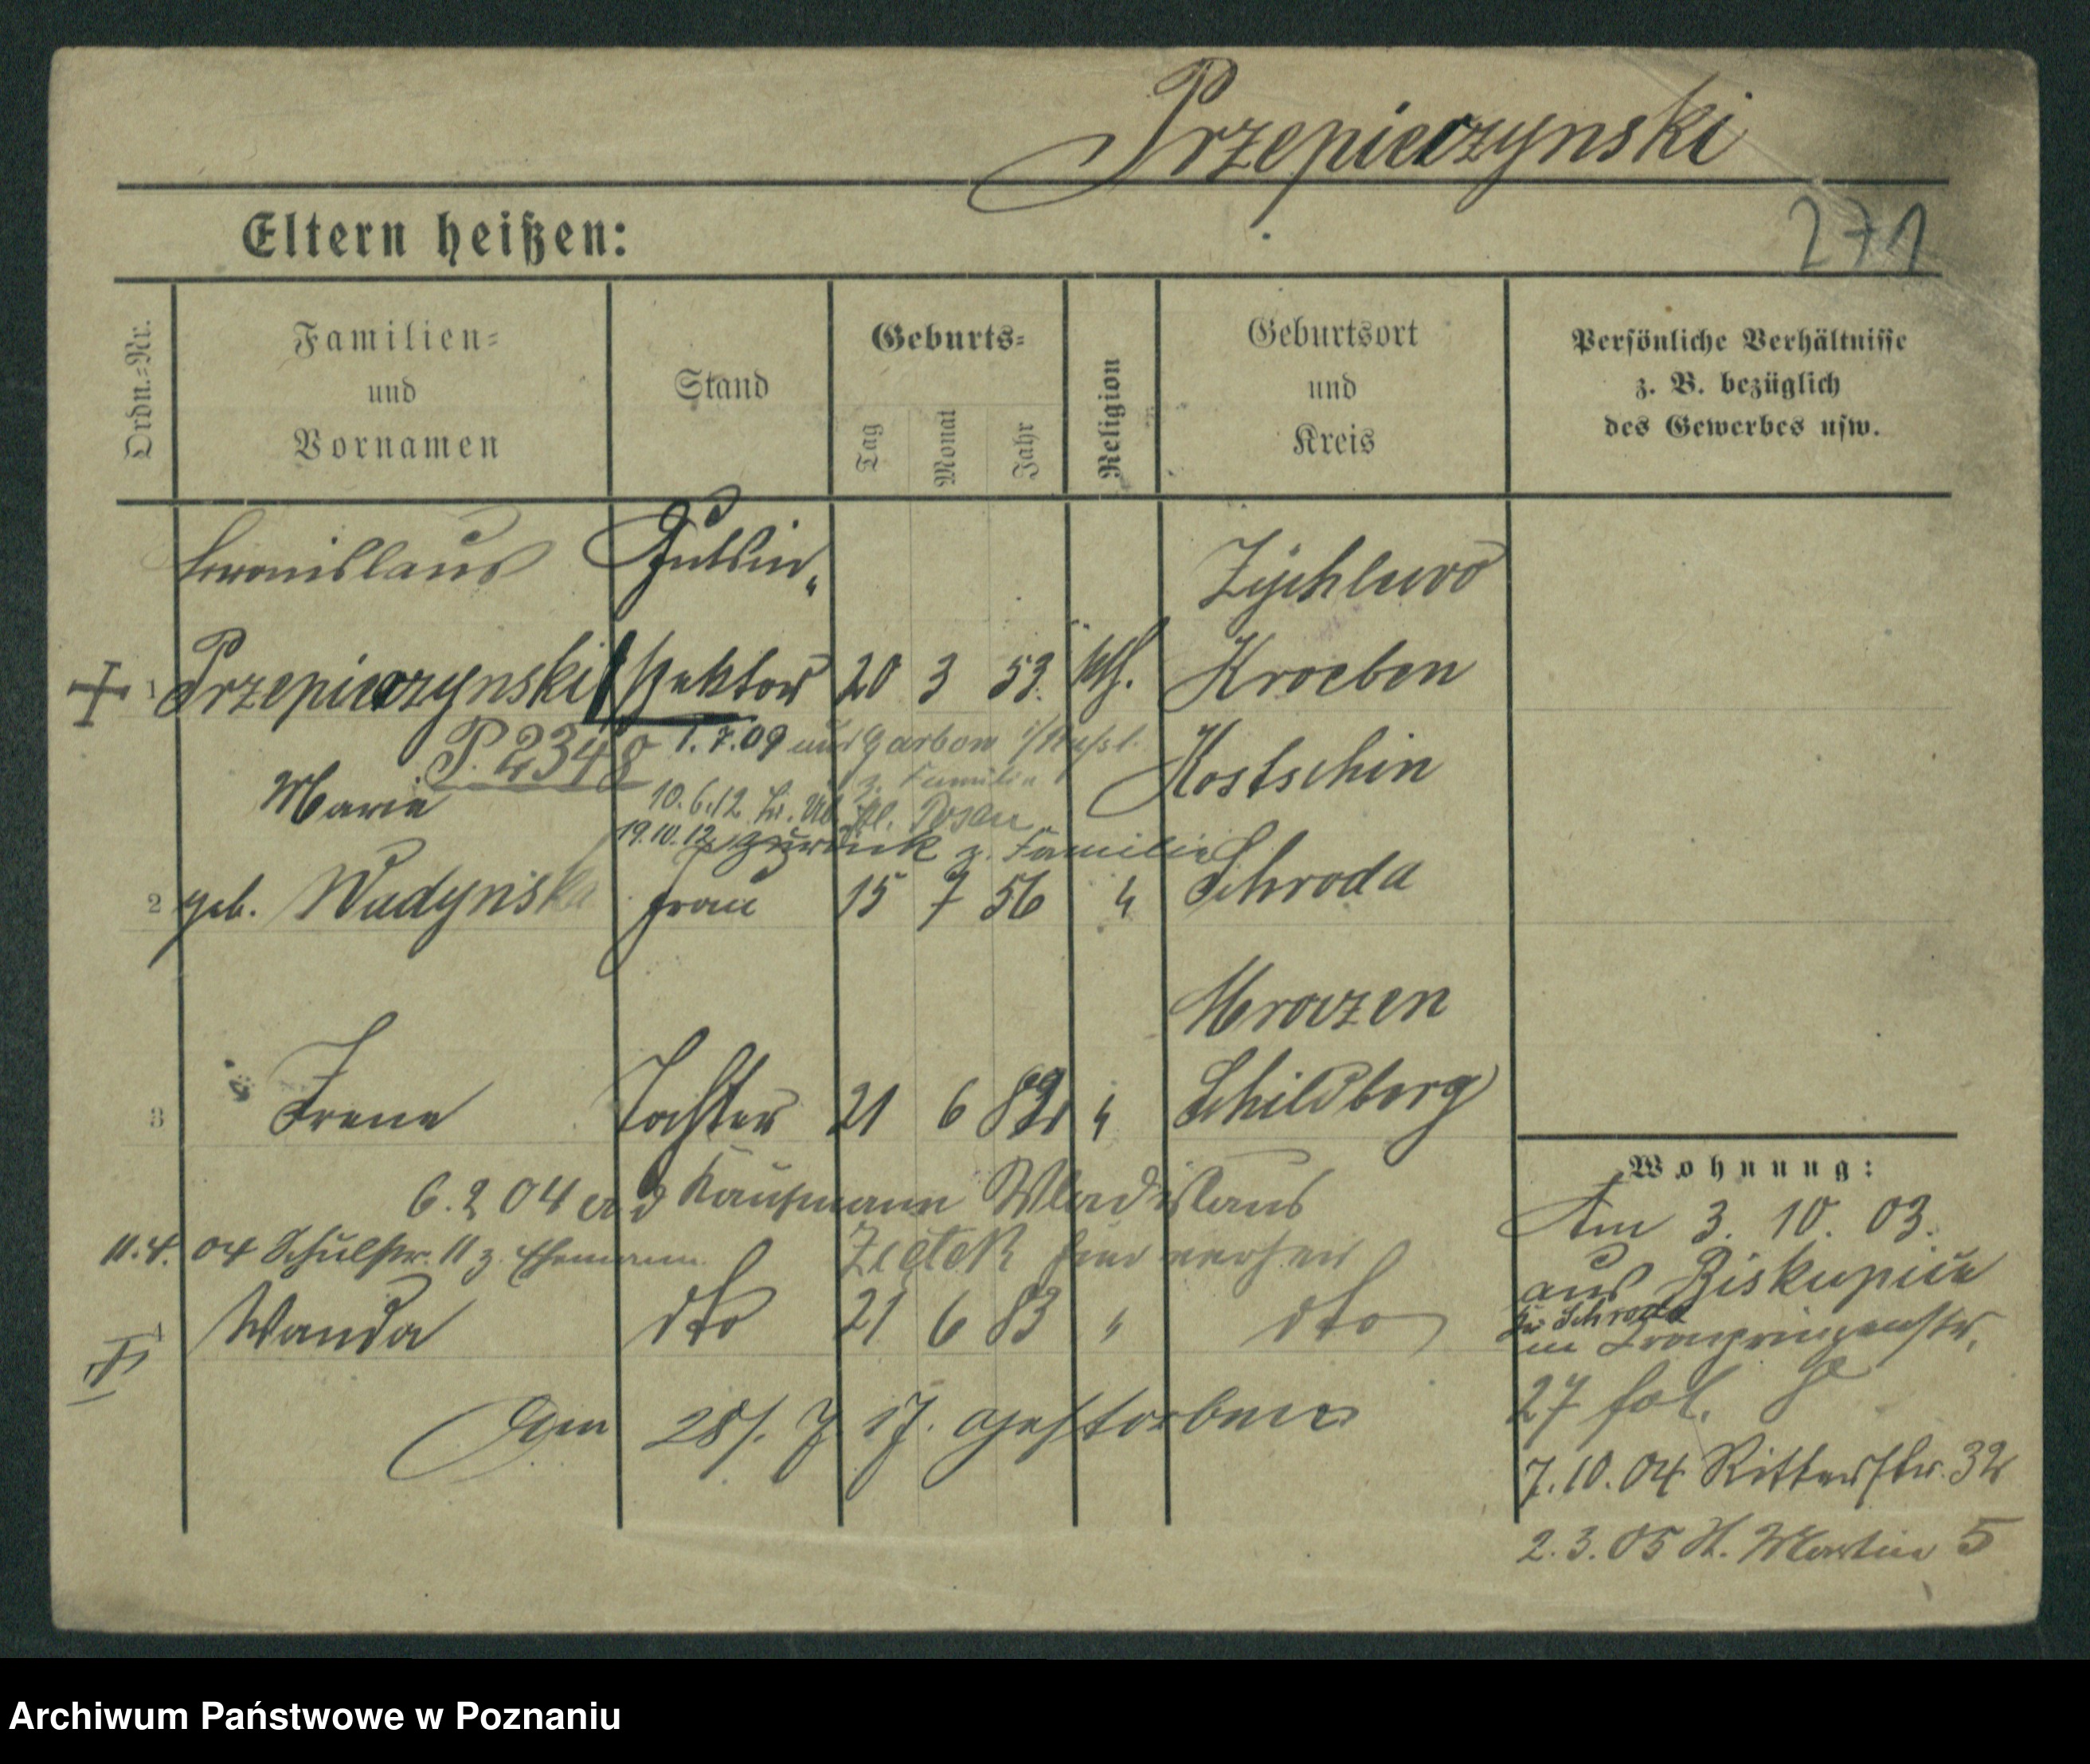 Przepierzynski
271
Eltern heißen:
Ordn.-Nr.
Familien-
und
Vornamen
Stand
Geburts-
Tag
Monat
Jahr
Religion
Geburtsort
und
Kreis
Persönliche Verhältnisse
z. B. bezüglich
des Gewerbes usw.
Bronislaus Gutsin"
Zychlewo
1 Przepierzynski spektor 20 3 53. kth. Kroeben
P. 2348 1.7.09 aus i/Russl.
z. Familie
Marie
Kostschin
10.6.12 Posen
19.10.12 zurück z. Familie
2 geb. Wudynska Frau 15 7 56 " Schroda
Mroczen
3 Irene Tochter 21 6 82 " Schildberg
6.2 04 ad Kaufmann Wladislaus
11.4. 04 Schulstr. 11 z. Ehemann Zietek
4 Wanda dto 21 6 83 " dto
Am 28/. 7. 17. gestorben
Wohnung:
Am 3. 10. 03.
aus Biskupice
Kr Schroda
in Kronprinzenstr.
27 fol.
7.10.04 Ritterstr. 32
2.3.05 St. Martin 5
Archiwum Państwowe w Poznaniu